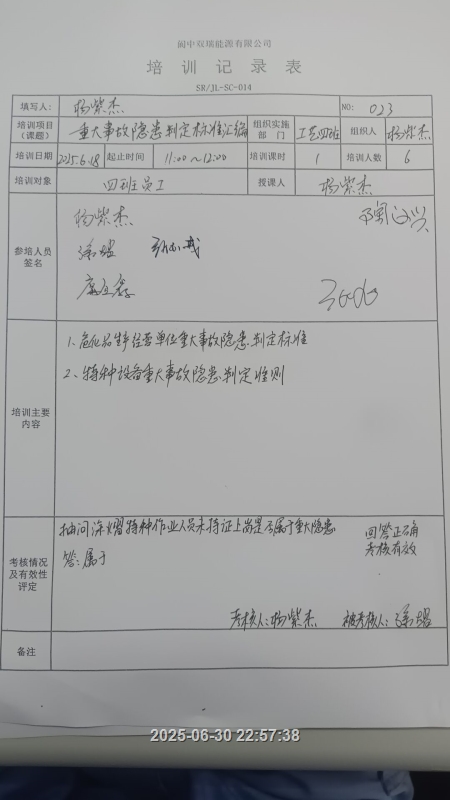 阆中双瑞能源有限公司
培训记录表
SR/JL-SC-014
填写人： 杨紫杰 NO: 023
培训项目（课题） 重大事故隐患判定标准汇编 组织实施部门 工艺四班 组织人 杨紫杰
培训日期 2025.6.18 起止时间 11:00～12:00 培训课时 1 培训人数 6
培训对象 四班员工 授课人 杨紫杰
参培人员签名
杨紫杰
培训主要内容
1、危化品生产经营单位重大事故隐患判定标准
2、特种设备重大事故隐患判定准则
考核情况及有效性评定
抽问涂熠特种作业人员未持证上岗是否属于重大隐患
答：属于
回答正确
考核有效
考核人：杨紫杰 被考核人：
备注
2025-06-30 22:57:38